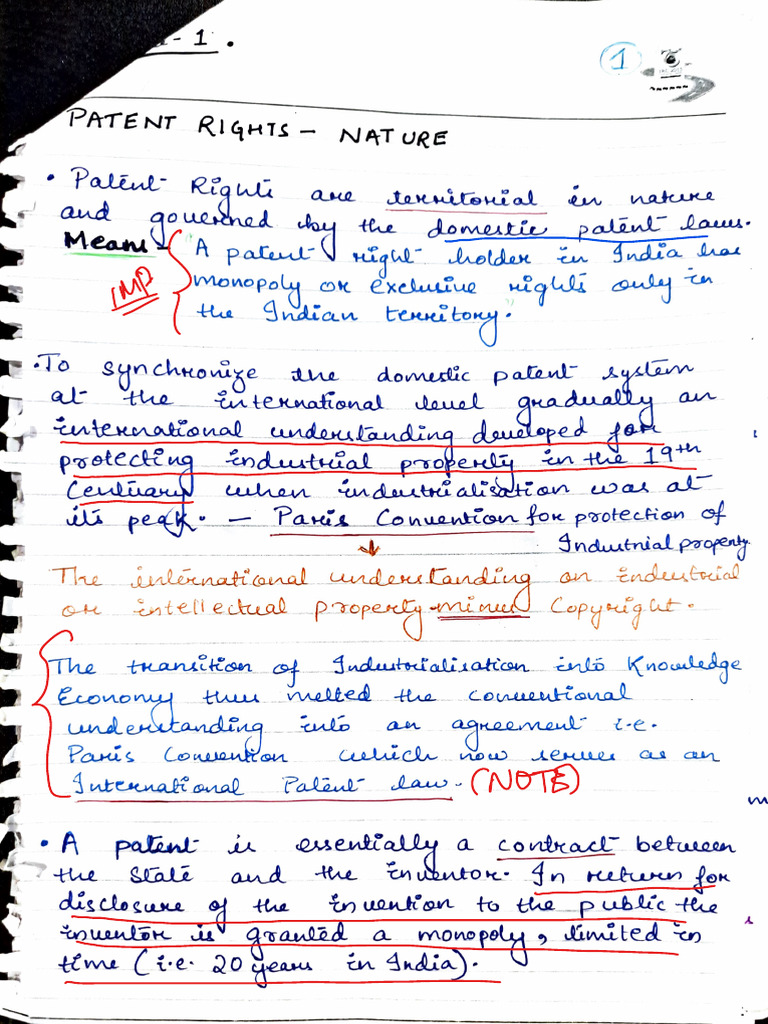 - 1 .
1
PATENT RIGHTS - NATURE
• Patent Rights are territorial in nature
and governed by the domestic patent laws.
Means - "A patent right holder in India has
IMP monopoly or exclusive rights only in
the Indian territory."
• To synchronize the domestic patent system
at the international level gradually an
international understanding developed for
protecting industrial property in the 19th
Centuary when industrialisation was at
its peak. - Paris Convention for protection of
Industrial property
↓
The international understanding on industrial
or intellectual property minus Copyright.
The transition of Industrialisation into Knowledge
Economy thus melted the conventional
understanding into an agreement i.e.
Paris Convention which now serves as an
International Patent law. (NOTE)
• A patent is essentially a contract between
the State and the inventor. In return for
disclosure of the invention to the public the
inventor is granted a monopoly, limited in
time (i.e. 20 years in India).